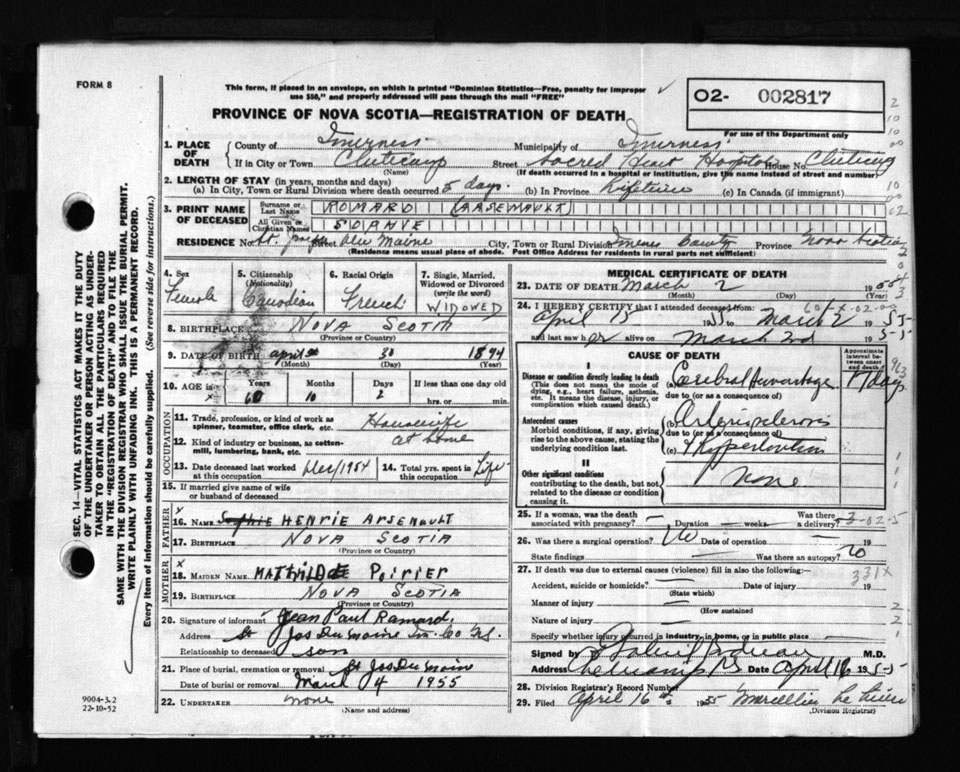 FORM 8
This form, if placed in an envelope, on which is printed "Dominion Statistics—Free, penalty for improper
use $50," and properly addressed will pass through the mail "FREE"
O2- 002817
For use of the Department only
PROVINCE OF NOVA SCOTIA—REGISTRATION OF DEATH
1. PLACE OF DEATH
County of Inverness Municipality of Inverness
If in City or Town Cheticamp Street Sacred Heart Hospital House No. Cheticamp
(Name) (If death occurred in a hospital or institution, give the name instead of street and number)
2. LENGTH OF STAY (in years, months and days)
(a) In City, Town or Rural Division where death occurred 5 days. (b) In Province Lifetime (c) In Canada (if immigrant)
3. PRINT NAME OF DECEASED
Surname or Last Name ROMARD (ARSENAULT)
All Given or Christian Names
RESIDENCE No. St. Joseph Street Du Moine City, Town or Rural Division County Province Nova Scotia
(Residence means usual place of abode. Post Office Address for residents in rural parts not sufficient)
4. Sex Female
5. Citizenship (Nationality) Canadian
6. Racial Origin French
7. Single, Married, Widowed or Divorced (write the word) WIDOWED
8. BIRTHPLACE NOVA SCOTIA
(Province or Country)
9. DATE OF BIRTH april 30 1894
(Month) (Day) (Year)
10. AGE is Years 60 Months 10 Days 2 If less than one day old hrs. or min.
OCCUPATION
11. Trade, profession, or kind of work as spinner, teamster, office clerk, etc. Housewife
12. Kind of industry or business, as cotton-mill, lumbering, bank, etc. at home
13. Date deceased last worked at this occupation Dec/1954 14. Total yrs. spent in this occupation Life
15. If married give name of wife or husband of deceased
FATHER
16. NAME HENRIE ARSENAULT
17. BIRTHPLACE NOVA SCOTIA
(Province or Country)
MOTHER
18. MAIDEN NAME MATHILDE POIRIER
19. BIRTHPLACE NOVA SCOTIA
(Province or Country)
20. Signature of informant Jean Paul Romard.
Address St Jos Du Moine In. Co N.S.
Relationship to deceased son
21. Place of burial, cremation or removal St Jos Du Moin
Date of burial or removal March 4 1955
22. UNDERTAKER none
(Name and address)
MEDICAL CERTIFICATE OF DEATH
23. DATE OF DEATH March 2 1955
(Month) (Day) (Year)
24. I HEREBY CERTIFY that I attended deceased from:
April 15 1955 to March 2 1955
and last saw her alive on March 2nd 1955
CAUSE OF DEATH
Approximate interval between onset and death
I
Disease or condition directly leading to death (This does not mean the mode of dying, e.g., heart failure, asthenia, etc. It means the disease, injury, or complication which caused death.)
(a) Cerebral Hemorrhage 17 days
due to (or as a consequence of)
Antecedent causes
Morbid conditions, if any, giving rise to the above cause, stating the underlying condition last.
(b) Arteriosclerosis
due to (or as a consequence of)
(c) Hypertention
II
Other significant conditions contributing to the death, but not related to the disease or condition causing it.
none
25. If a woman, was the death associated with pregnancy? — Duration — weeks— Was there a delivery? 3-02-5
26. Was there a surgical operation? No Date of operation — 19
State findings — Was there an autopsy? No
27. If death was due to external causes (violence) fill in also the following:— 331X
Accident, suicide or homicide? — Date of injury 19
(State which)
Manner of injury —
(How sustained)
Nature of injury —
Specify whether injury occurred in industry, in home, or in public place —
Signed by M.D.
Address Cheticamp NS Date April 16 1955
28. Division Registrar's Record Number
29. Filed April 16th 1955
(Division Registrar)
SEC. 14—VITAL STATISTICS ACT MAKES IT THE DUTY
OF THE UNDERTAKER OR PERSON ACTING AS UNDER-
TAKER TO OBTAIN ALL THE PARTICULARS REQUIRED
IN THE "REGISTRATION OF DEATH" AND TO FILE THE
SAME WITH THE DIVISION REGISTRAR WHO SHALL ISSUE THE BURIAL PERMIT.
WRITE PLAINLY WITH UNFADING INK. THIS IS A PERMANENT RECORD.
Every item of information should be carefully supplied. (See reverse side for instructions.)
9004-3.2
22-10-52